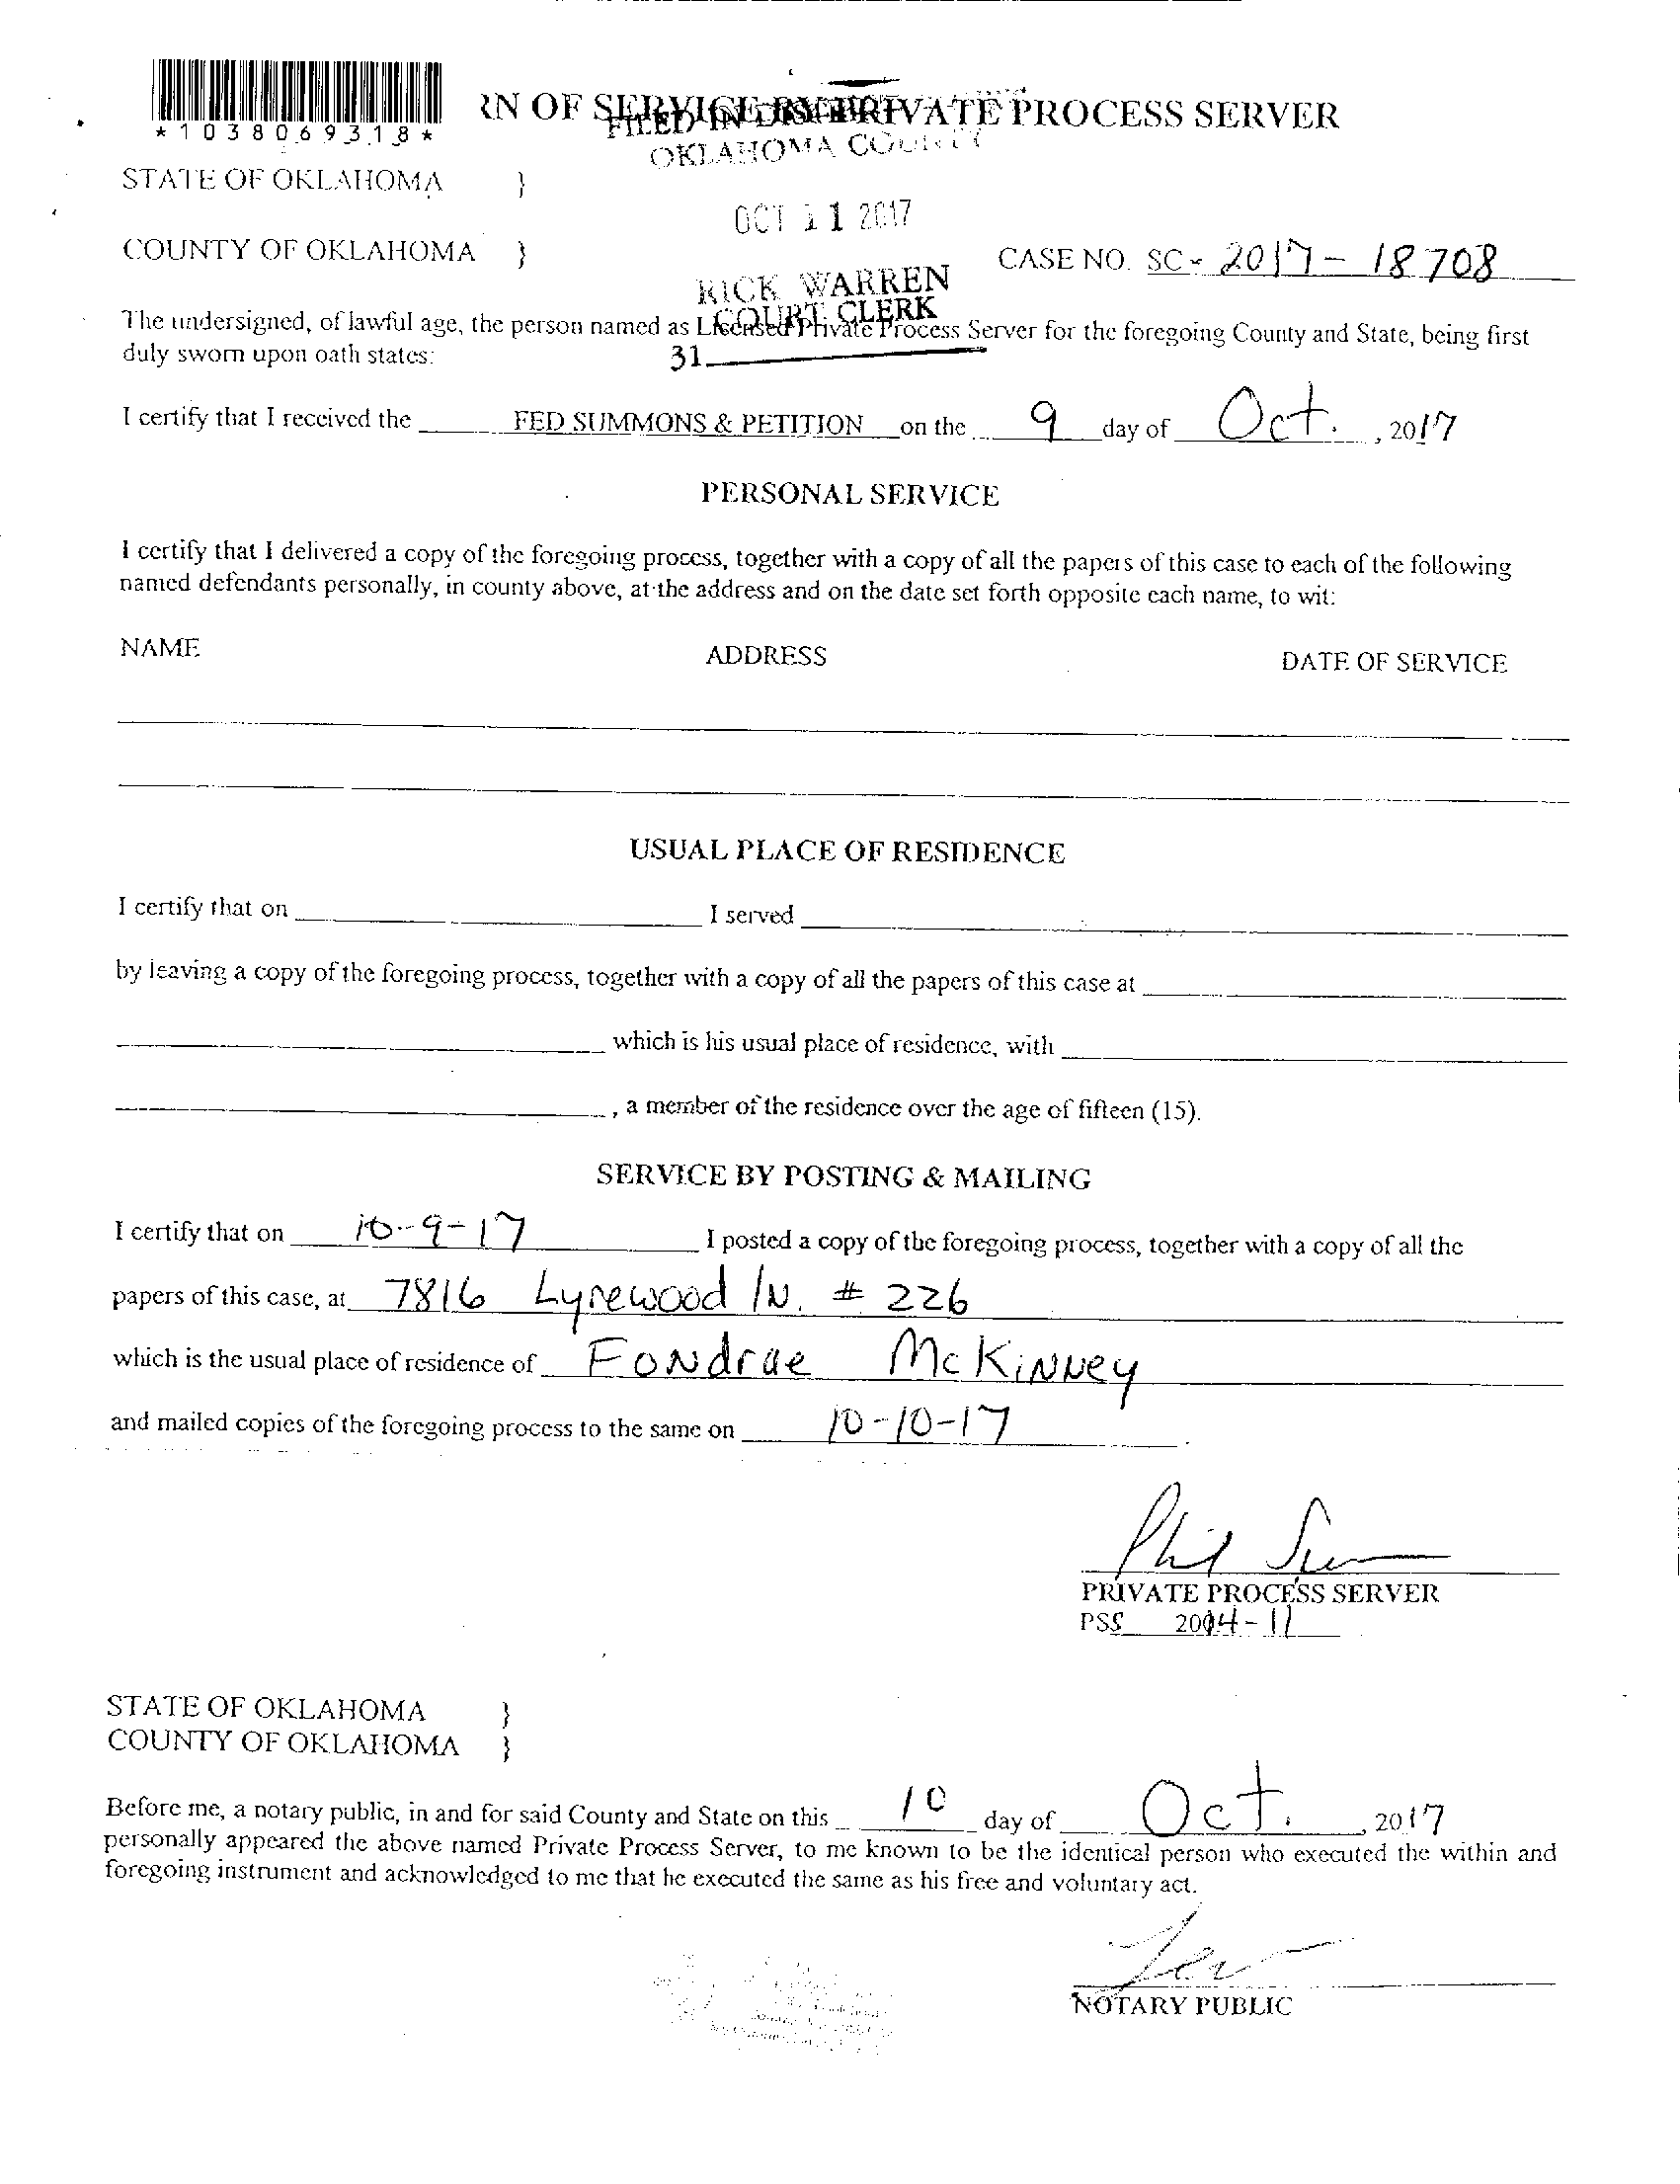 RN OF SERVICE BY PRIVATE PROCESS SERVER
*1038069318*
FILED IN DISTRICT
OKLAHOMA COUNTY
STATE OF OKLAHOMA }
OCT 11 2017
COUNTY OF OKLAHOMA }
CASE NO. SC- 2017-18708
RICK WARREN
COURT CLERK
The undersigned, of lawful age, the person named as Licensed Private Process Server for the foregoing County and State, being first
duly sworn upon oath states:
31
I certify that I received the FED SUMMONS & PETITION on the 9 day of Oct. , 2017
PERSONAL SERVICE
I certify that I delivered a copy of the foregoing process, together with a copy of all the papers of this case to each of the following
named defendants personally, in county above, at the address and on the date set forth opposite each name, to wit:
NAME ADDRESS DATE OF SERVICE
USUAL PLACE OF RESIDENCE
I certify that on I served
by leaving a copy of the foregoing process, together with a copy of all the papers of this case at
which is his usual place of residence, with
, a member of the residence over the age of fifteen (15).
SERVICE BY POSTING & MAILING
I certify that on 10-9-17 I posted a copy of the foregoing process, together with a copy of all the
papers of this case, at 7816 Lyrewood ln. # 226
which is the usual place of residence of Fondrae McKinney
and mailed copies of the foregoing process to the same on 10-10-17 .
Phil
PRIVATE PROCESS SERVER
PSS 2004-11
STATE OF OKLAHOMA }
COUNTY OF OKLAHOMA }
Before me, a notary public, in and for said County and State on this 10 day of Oct. , 2017
personally appeared the above named Private Process Server, to me known to be the identical person who executed the within and
foregoing instrument and acknowledged to me that he executed the same as his free and voluntary act.
NOTARY PUBLIC